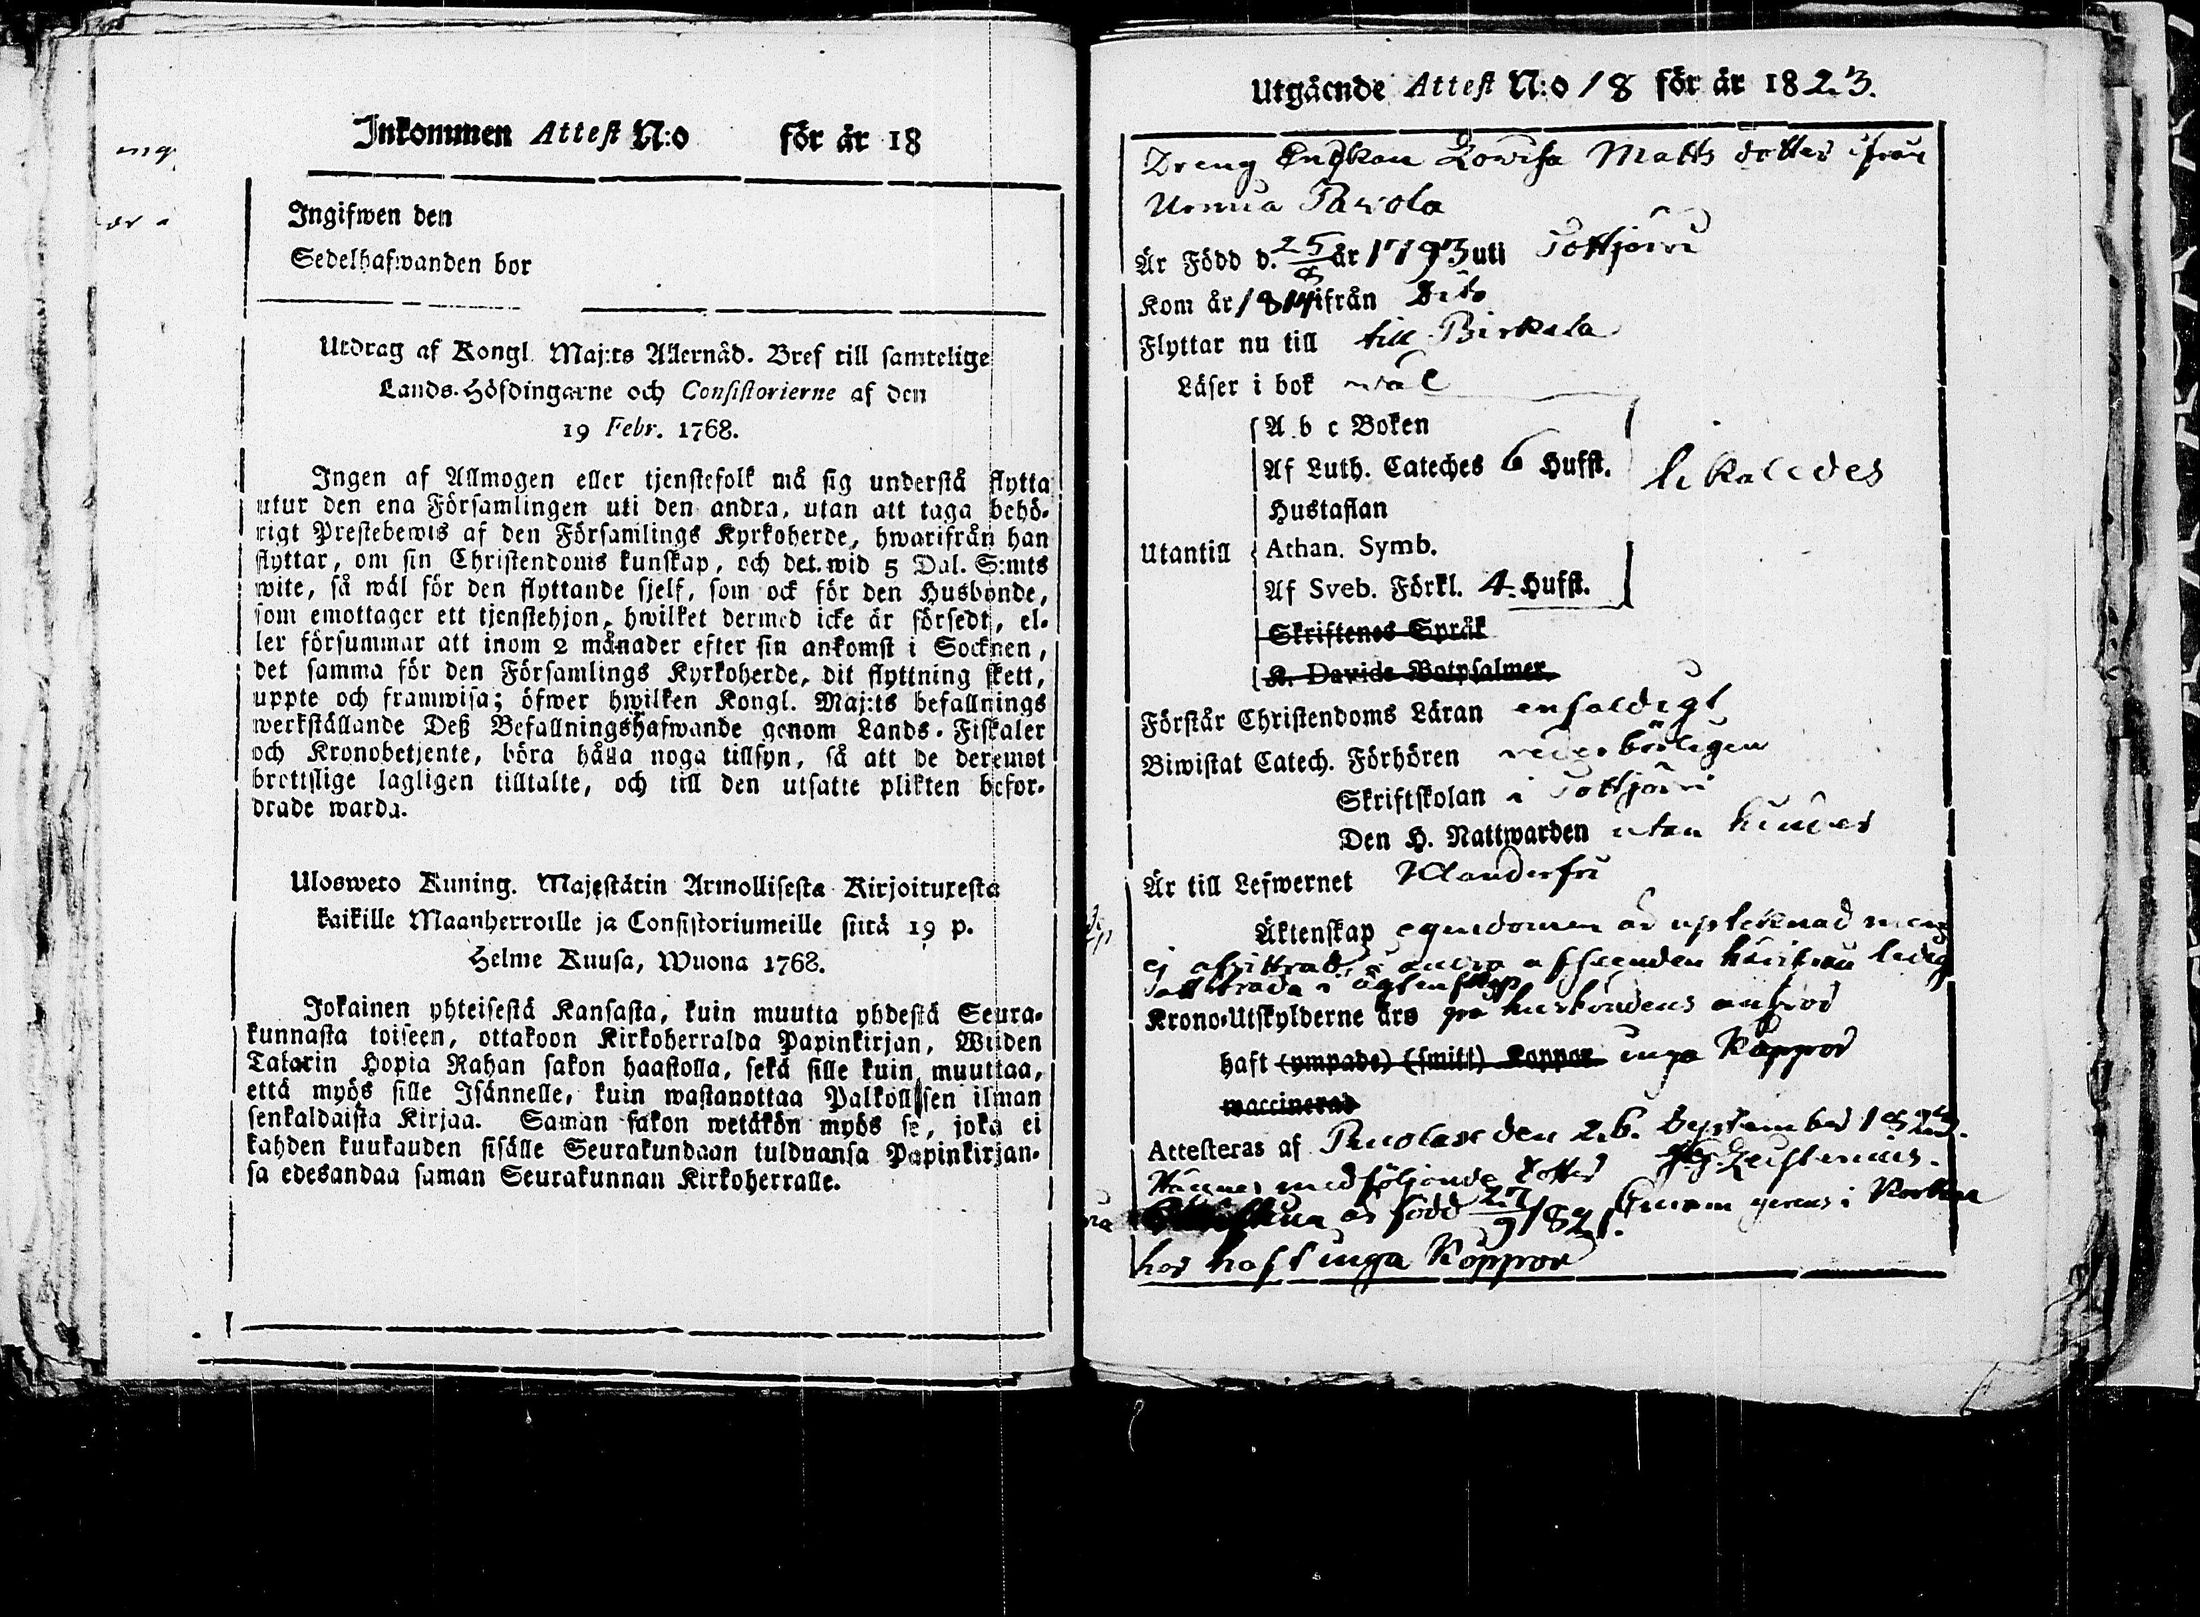 Inkommen Attest N:o för år 18
Ingifwen den
Sedelhafwanden bor
Utdrag af Kongl. Maj:ts Allernåd. Bref till samtelige
Lands-Höfdingarne och Consistorierne af den
19 Febr. 1768.
Ingen af Allmogen eller tjenstefolk må sig understå flytta
utur den ena Församlingen uti den andra, utan att taga behö-
rigt Prestebewis af den Församlings Kyrkoherde, hwarifrån han
flyttar, om sin Christendoms kunskap, och det wid 5 Dal. S:mts
wite, så wäl för den flyttande sjelf, som ock för den Husbonde,
som emottager ett tjenstehjon, hwilket dermed icke är försedt, el-
ler försummar att inom 2 månader efter sin ankomst i Socknen,
det samma för den Församlings Kyrkoherde, dit flyttning skett,
uppte och framwisa; öfwer hwilken Kongl. Maj:ts befallnings
werkställande Deß Befallningshafwande genom Lands-Fiskaler
och Kronobetjente, böra hålla noga tillsyn, så att de deremot
brottslige lagligen tilltalte, och till den utsatte plikten befor-
drade warda.
Ulosweto Kuning. Majestätin Armollisesta Kirjoituxesta
kaikille Maanherroille ja Consistoriumeille siitä 19 p.
Helme Kuusa, Wuona 1768.
Jokainen yhteisestä Kansasta, kuin muutta yhdestä Seura-
kunnasta toiseen, ottakoon Kirkoherralda Papinkirjan, Wiiden
Talarin Hopia Rahan sakon haastolla, sekä sille kuin muuttaa,
että myös sille Isännelle, kuin wastanottaa Palkollisen ilman
senkaldaista Kirjaa. Saman sakon wetäkön myös se, joka ei
kahden kuukauden sisälle Seurakundaan tulduansa Papinkirjan-
sa edesandaa saman Seurakunnan Kirkoherralle.
Utgående Attest N:o 18 för år 1823.
Dreng Enckan Lovisa Matts dotter ifrån
Urnua Pavola
Är Född d. 25/8 år 1793 uti Tottjärvi
Kom år 1814 ifrån Dito
Flyttar nu till till Birkala
Läser i bok wäl
A b c Boken
Af Luth. Cateches 6 Hufst. likaledes
Hustaflan
Utantill Athan. Symb.
Af Sveb. Förkl. 4. Hufst.
Skriftenes Språk
K. Davids Botpsalmer.
Förstår Christendoms Läran enfaldigt
Biwistat Catech. Förhören wederbörligen
Skriftskolan i Tottjärvi
Den H. Nattwarden utan hinder
Är till Lefwernet Klanderfri
Äktenskap egendomen är uptecknad men
ej afvittrad, i andra afseenden härifrån ledig
att träda i ägtenskap
Krono-Utskylderne äro på husbondens answar
haft (ympade) (smitt) Koppor inga Koppor
waccinerad
Attesteras af den 26. September 1823.
Hännes medföljande dotter
är född 27/9 1821.
har haft inga Koppor